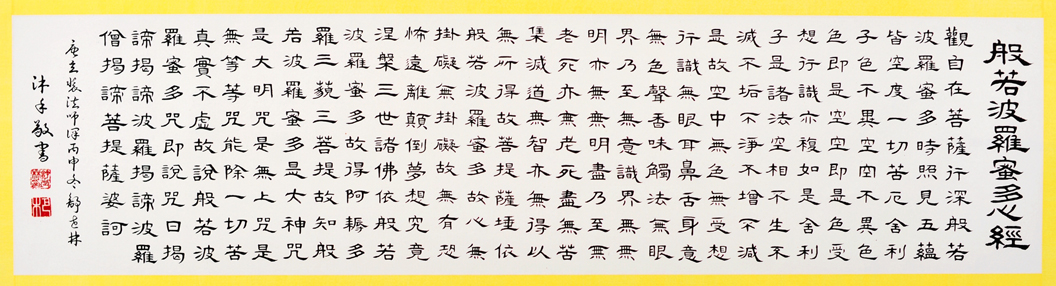 般若波羅蜜多心經
觀自在菩薩行深般若
波羅蜜多時照見五蘊
皆空度一切苦厄舍利
子色不異空空不異色
色即是空空即是色受
想行識亦復如是舍利
子是諸法空相不生不
滅不垢不淨不增不減
是故空中無色無受想
行識無眼耳鼻舌身意
無色聲香味觸法無眼
界乃至無意識界無無
明亦無無明盡乃至無
老死亦無老死盡無苦
集滅道無智亦無得以
無所得故菩提薩埵依
般若波羅蜜多故心無
掛礙無掛礙故無有恐
怖遠離顛倒夢想究竟
涅槃三世諸佛依般若
波羅蜜多故得阿耨多
羅三藐三菩提故知般
若波羅蜜多是大神咒
是大明咒是無上咒是
無等等咒能除一切苦
真實不虛故說般若波
羅蜜多咒即說咒曰揭
諦揭諦波羅揭諦波羅
僧揭諦菩提薩婆訶
唐玄奘法師譯丙申冬靜林
沐手敬書